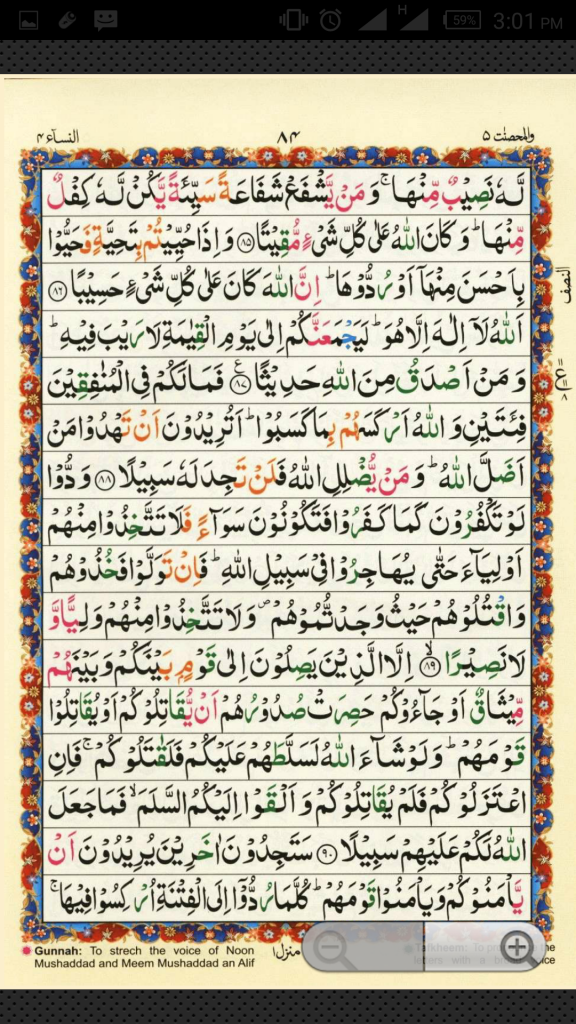 H
59%
3:01 PM
النساۤء ۴
۸۴
والمحصنٰت ۵
لَّهٗ نَصِیْبٌ مِّنْهَا ۚ وَ مَنْ یَّشْفَعْ شَفَاعَةً سَیِّئَةً یَّكُنْ لَّهٗ كِفْلٌ
مِّنْهَا ؕ وَ كَانَ اللّٰهُ عَلٰى كُلِّ شَیْءٍ مُّقِیْتًا ﴿۸۵﴾ وَ اِذَا حُیِّیْتُمْ بِتَحِیَّةٍ فَحَیُّوْا
بِاَحْسَنَ مِنْهَاۤ اَوْ رُدُّوْهَا ؕ اِنَّ اللّٰهَ كَانَ عَلٰى كُلِّ شَیْءٍ حَسِیْبًا ﴿۸۶﴾
النصف
اَللّٰهُ لَاۤ اِلٰهَ اِلَّا هُوَ ؕ لَیَجْمَعَنَّكُمْ اِلٰى یَوْمِ الْقِیٰمَةِ لَا رَیْبَ فِیْهِ ؕ
وَ مَنْ اَصْدَقُ مِنَ اللّٰهِ حَدِیْثًا ﴿۸۷﴾ فَمَا لَكُمْ فِی الْمُنٰفِقِیْنَ
فِئَتَیْنِ وَ اللّٰهُ اَرْكَسَهُمْ بِمَا كَسَبُوْا ؕ اَتُرِیْدُوْنَ اَنْ تَهْدُوْا مَنْ
اَضَلَّ اللّٰهُ ؕ وَ مَنْ یُّضْلِلِ اللّٰهُ فَلَنْ تَجِدَ لَهٗ سَبِیْلًا ﴿۸۸﴾ وَدُّوْا
لَوْ تَكْفُرُوْنَ كَمَا كَفَرُوْا فَتَكُوْنُوْنَ سَوَآءً فَلَا تَتَّخِذُوْا مِنْهُمْ
اَوْلِیَآءَ حَتّٰى یُهَاجِرُوْا فِیْ سَبِیْلِ اللّٰهِ ؕ فَاِنْ تَوَلَّوْا فَخُذُوْهُمْ
وَاقْتُلُوْهُمْ حَیْثُ وَجَدْتُّمُوْهُمْ ۪ وَ لَا تَتَّخِذُوْا مِنْهُمْ وَلِیًّا وَّ
لَا نَصِیْرًا ﴿ۙ۸۹﴾ اِلَّا الَّذِیْنَ یَصِلُوْنَ اِلٰى قَوْمٍۭ بَیْنَكُمْ وَ بَیْنَهُمْ
مِّیْثَاقٌ اَوْ جَآءُوْكُمْ حَصِرَتْ صُدُوْرُهُمْ اَنْ یُّقَاتِلُوْكُمْ اَوْ یُقَاتِلُوْا
قَوْمَهُمْ ؕ وَ لَوْ شَآءَ اللّٰهُ لَسَلَّطَهُمْ عَلَیْكُمْ فَلَقٰتَلُوْكُمْ ۚ فَاِنِ
اعْتَزَلُوْكُمْ فَلَمْ یُقَاتِلُوْكُمْ وَ اَلْقَوْا اِلَیْكُمُ السَّلَمَ ۙ فَمَا جَعَلَ
اللّٰهُ لَكُمْ عَلَیْهِمْ سَبِیْلًا ﴿۹۰﴾ سَتَجِدُوْنَ اٰخَرِیْنَ یُرِیْدُوْنَ اَنْ
یَّاْمَنُوْكُمْ وَ یَاْمَنُوْا قَوْمَهُمْ ؕ كُلَّمَا رُدُّوْۤا اِلَى الْفِتْنَةِ اُرْكِسُوْا فِیْهَا ۚ
Gunnah: To strech the voice of Noon
Mushaddad and Meem Mushaddad an Alif
منزل۱